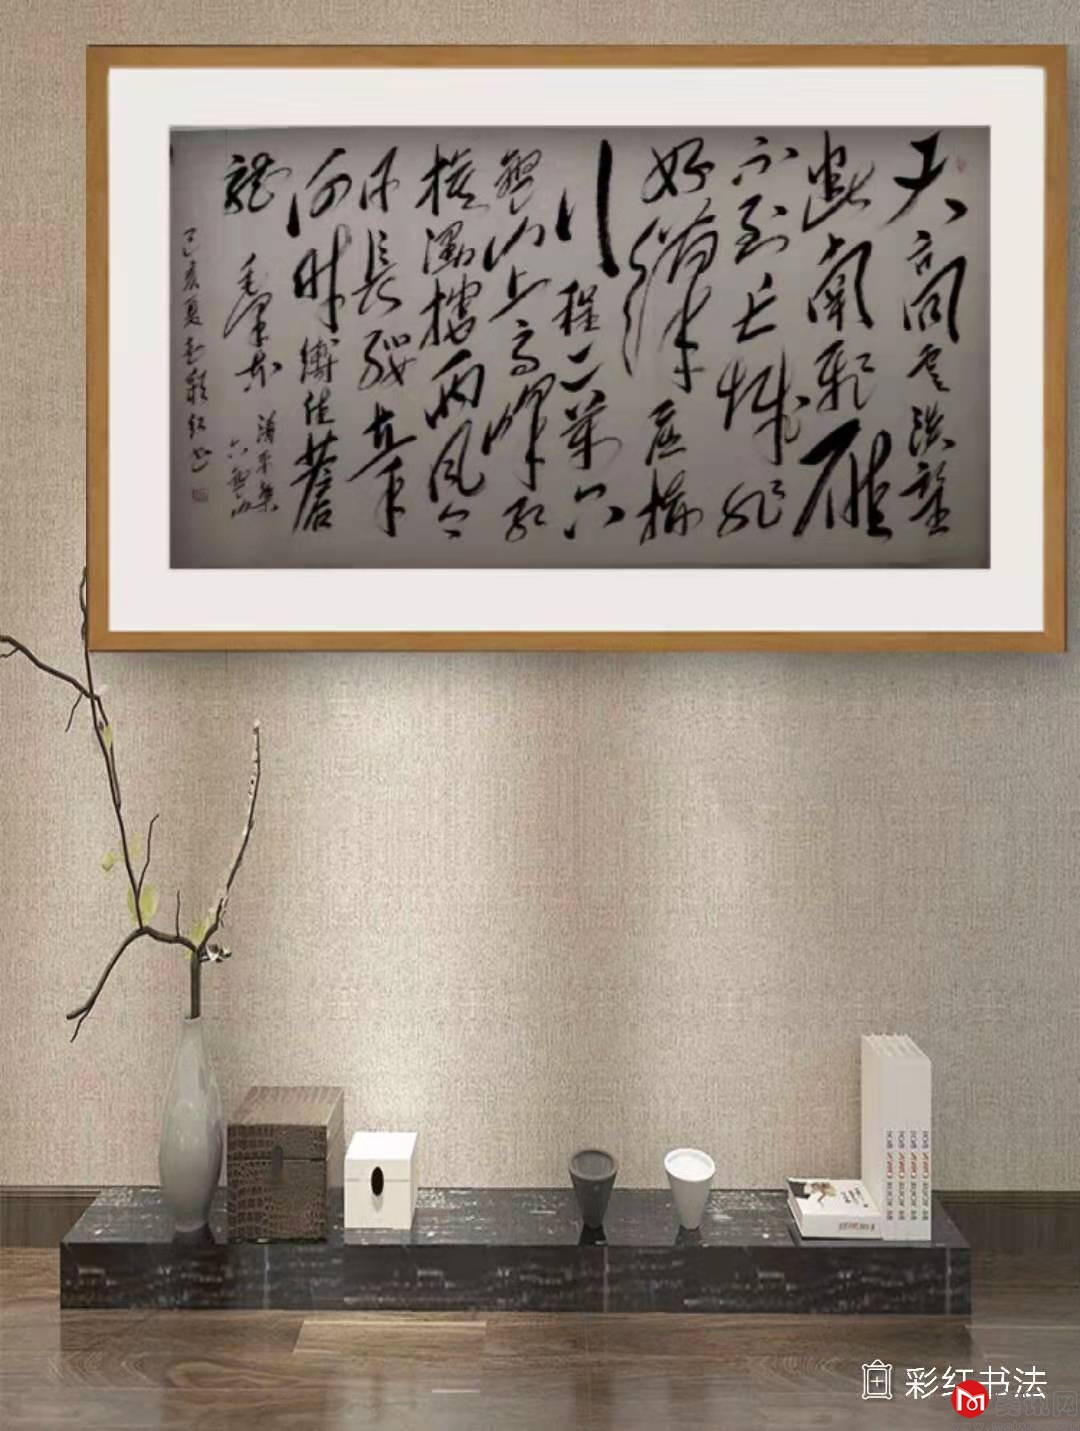 天高雲淡望
断南飛雁
不到长城非
好漢屈指
行程二萬六
盤山上高峰红
旗漫捲西风今
日長缨在手
何時缚住蒼
龍 毛泽东 清平樂
六盤山
己亥夏 彩红书
彩红书法